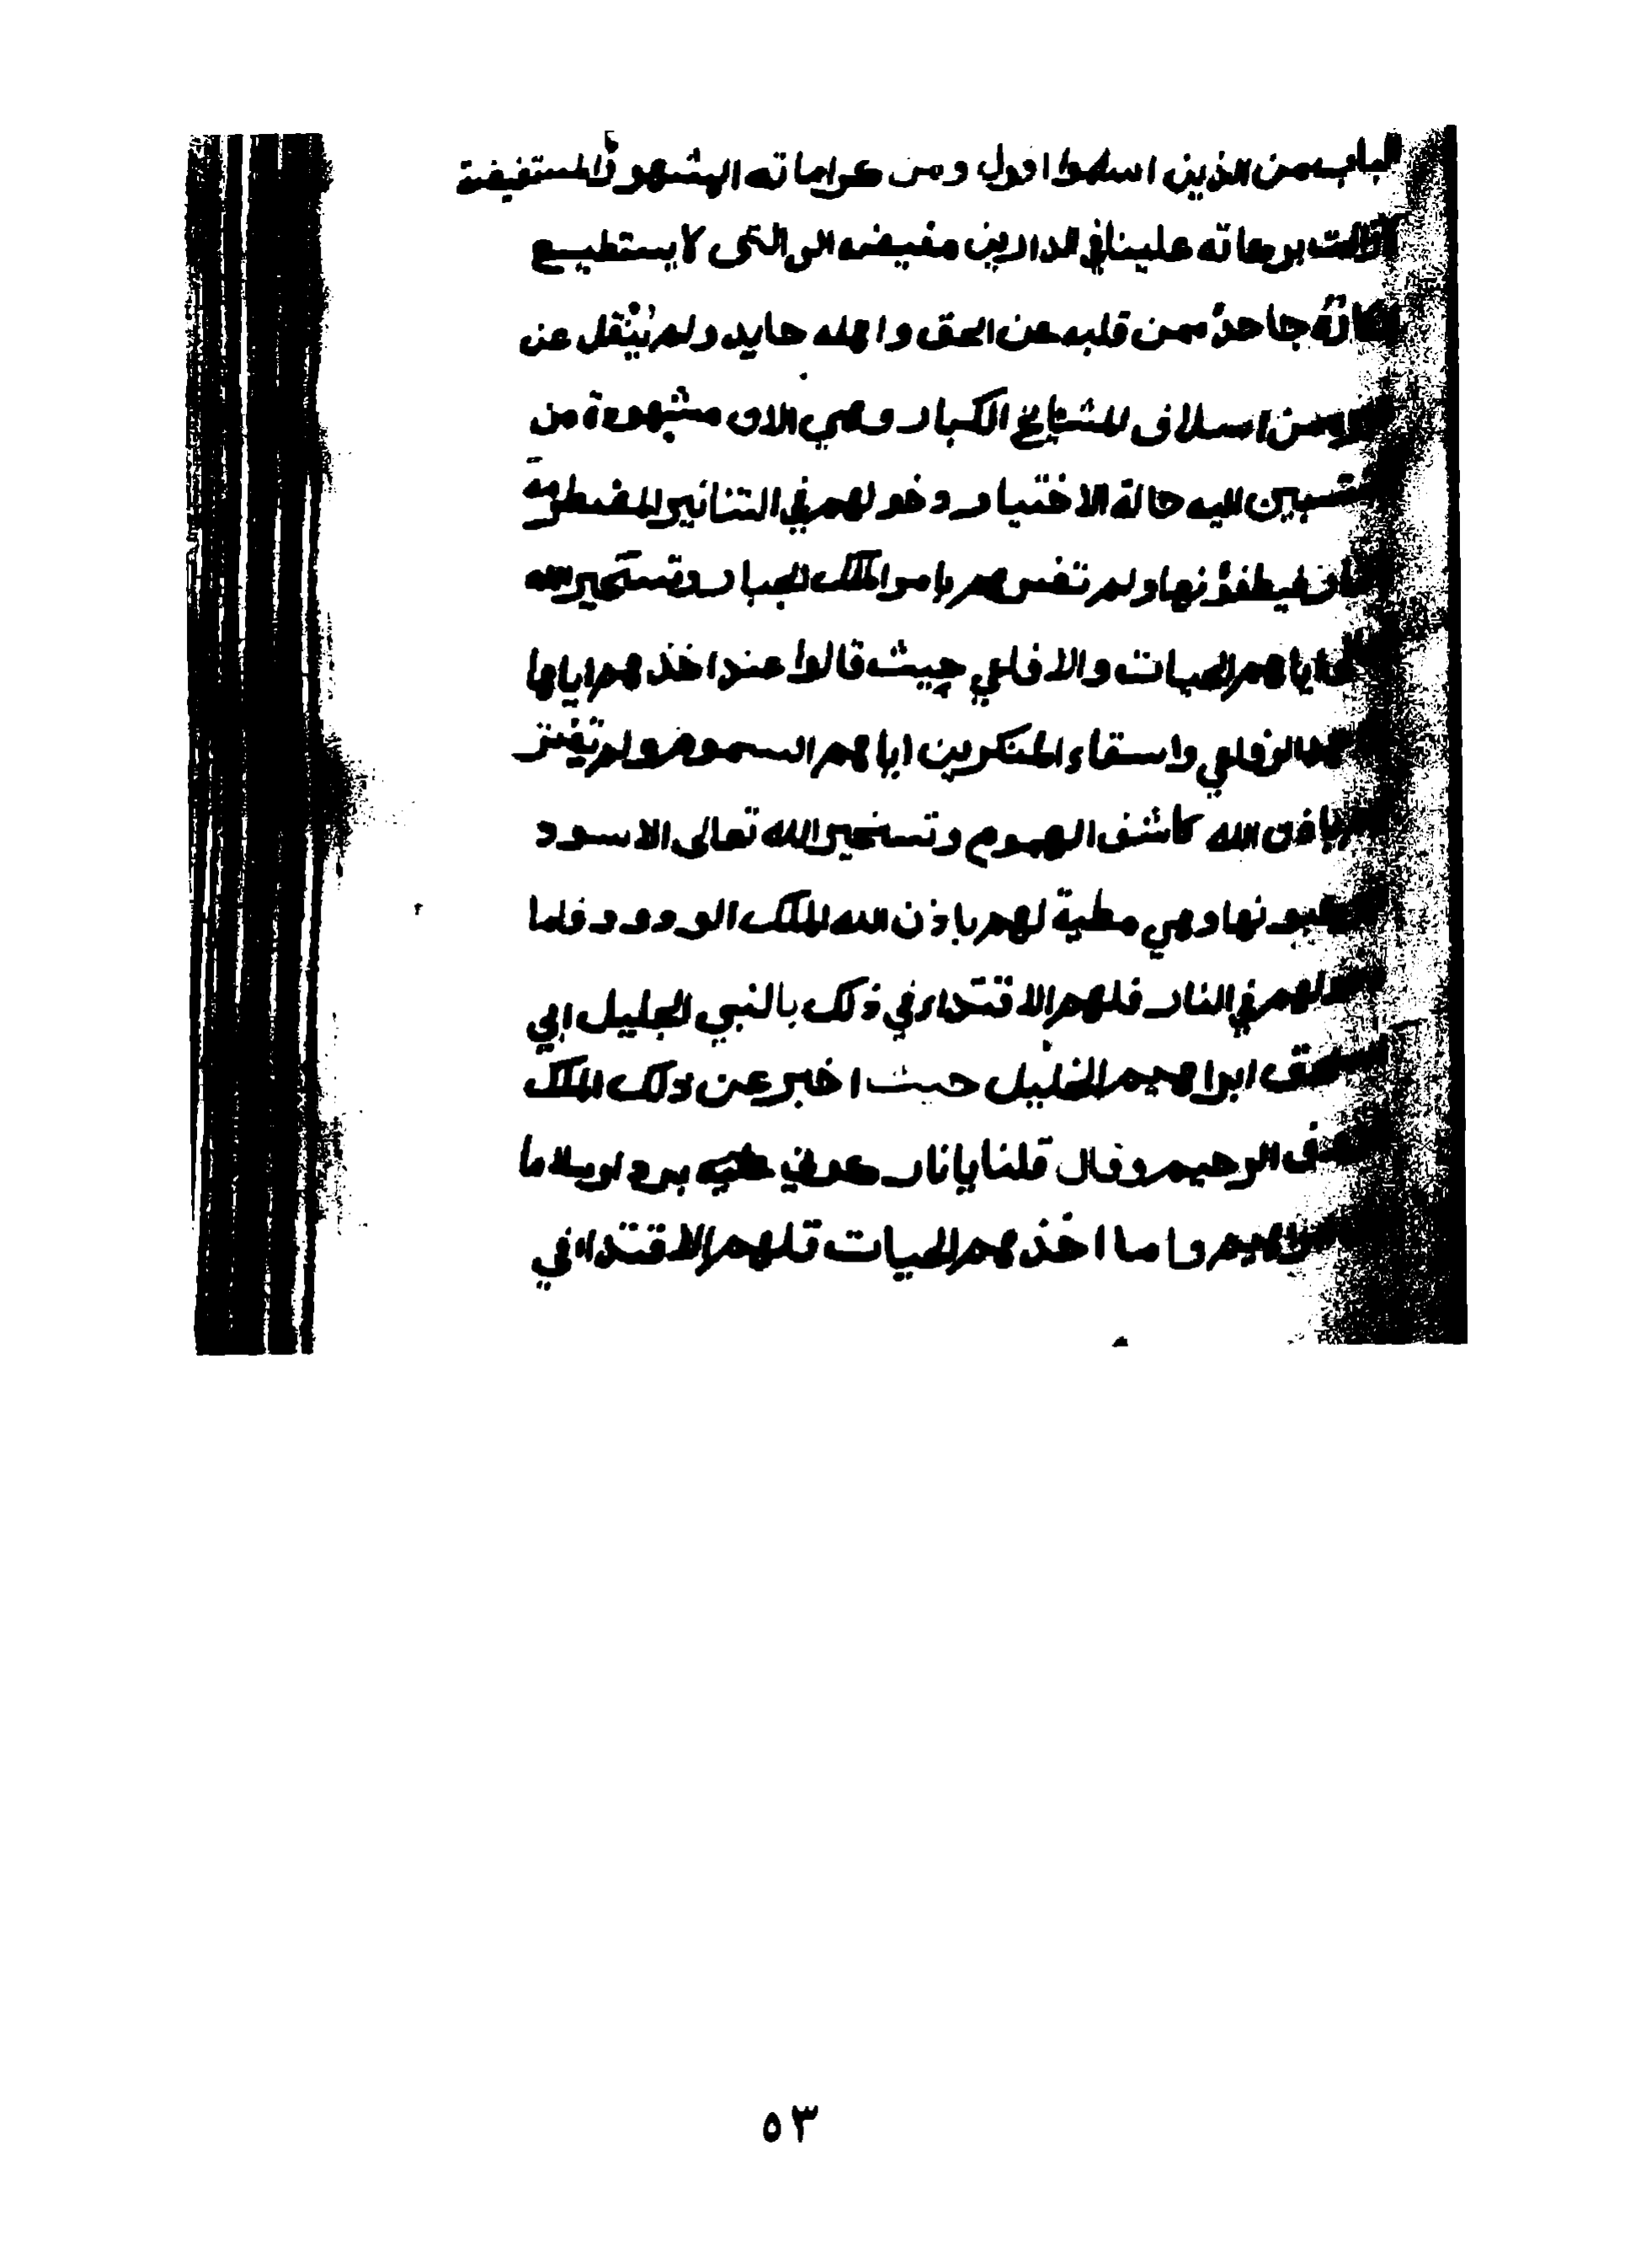 الباب من الذين اسلموا اول ومن كراماته المشهورة المستفيضة
زالت بركاته علينا في الدارين مفيضه الى التى لا يستطيع
جاحدٌ ممن قلبه عن الحق واهله حايد ولم يُنْقل عن
من اسلاف المشايخ الكبار وهي الان مشهودة من
المنتسبين اليه حالة الاختيار دخولهم في التنانير المضطرمة
فيطفؤنها ولم تضرهم بامر الملك الجبار وتسخير الله
اياهم الحيات والافاعي حيث قالوا عند اخذهم اياها
الافاعي واسقاء المنكرين اياهم السموم ولم تضر
باذن الله كاشف الهموم وتسخير الله تعالى الاسود
وهي مطية لهم باذن الله الملك الودود فاما
دخولهم في النار فلهم الاقتداء في ذلك بالنبي الجليل ابي
ابراهيم الخليل حيث اخبر عن ذلك الملك
الرحيم وقال قلنا يا نار كوني عليه بردا وسلاما
ابراهيم واما اخذهم الحيات فلهم الاقتداء في
٥٣